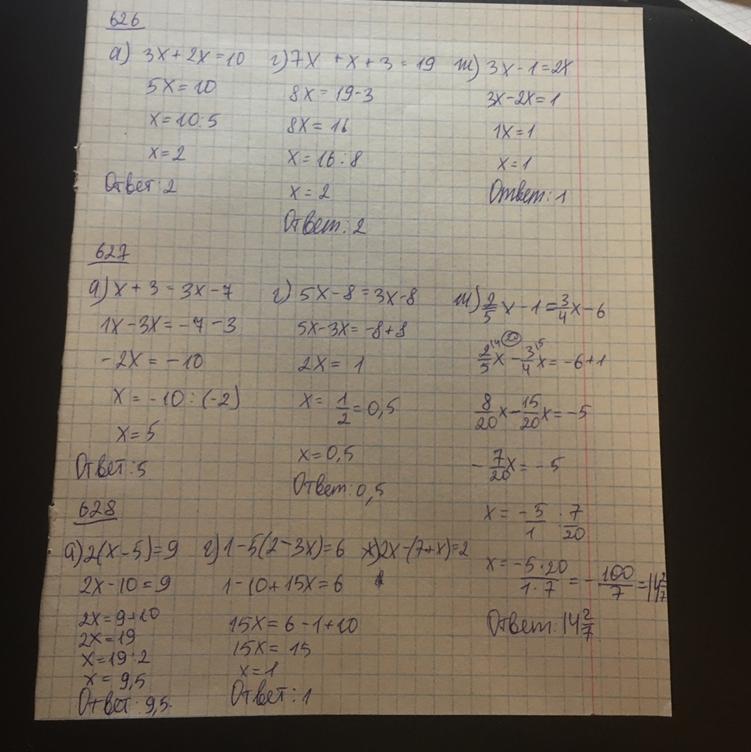 626
а) 3x+2x=10
5x=10
x=10:5
x=2
Ответ: 2
г) 7x+x+3=19
8x=19-3
8x=16
x=16:8
x=2
Ответ: 2
ж) 3x-1=2x
3x-2x=1
1x=1
x=1
Ответ: 1
627
а) x+3=3x-7
1x-3x=-7-3
-2x=-10
x=-10:(-2)
x=5
Ответ: 5
г) 5x-8=3x-8
5x-3x=-8+8
2x=1
x=1/2=0,5
x=0,5
Ответ: 0,5
ж) 2/5x-1=3/4x-6
2/5x-3/4x=-6+1
8/20x-15/20x=-5
-7/20x=-5
x=-5/1:7/20
x=-5·20/1·7=-100/7=14 2/7
Ответ: 14 2/7
628
а) 2(x-5)=9
2x-10=9
2x=9+10
2x=19
x=19:2
x=9,5
Ответ: 9,5.
г) 1-5(2-3x)=6
1-10+15x=6
15x=6-1+10
15x=15
x=1
Ответ: 1
ж) 2x-(7+x)=2